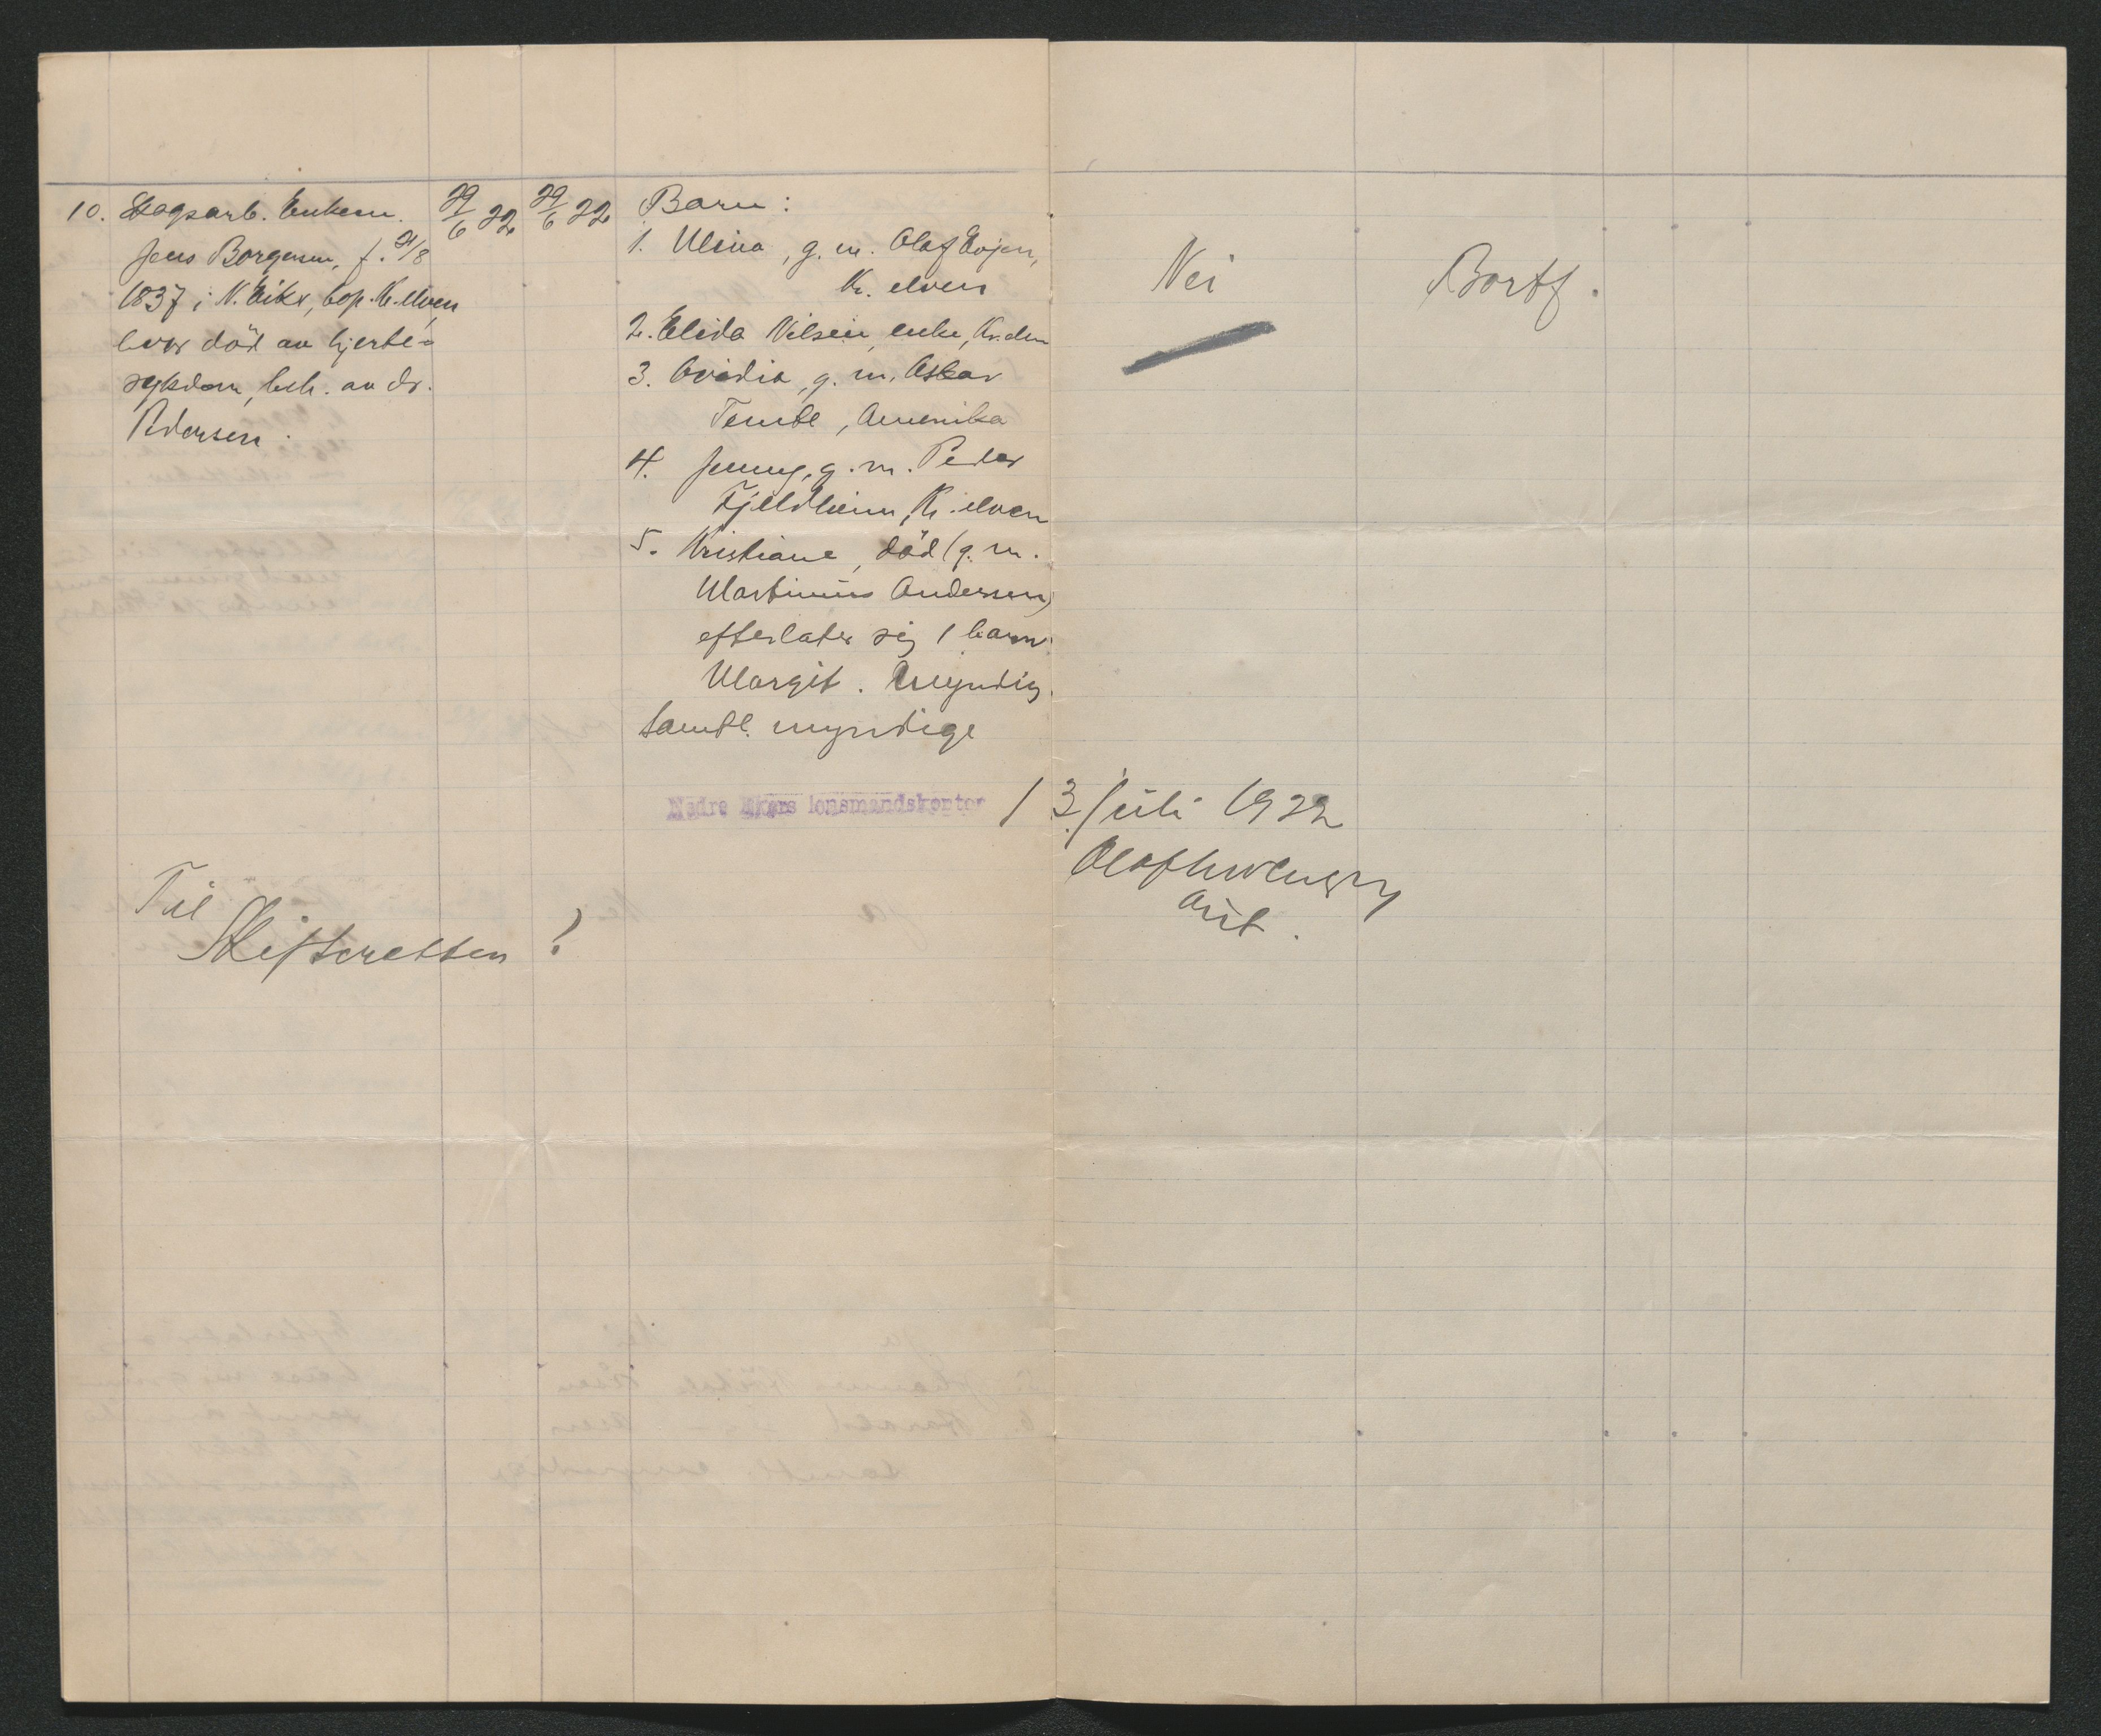 10. Dagsarb. Enkem.
Jens Borgersen, f. 21/8
1837 i N. Eiker, bop. Kr. elven,
hvor död av hjerte-
sykdom, beh. av dr.
Pedersen.
29/6 22
29/6 22
Barn:
1. Ulina, g. m. Olaf Evjen,
Kr. elven
2. Elida Nilsen, enke, Kr. elven
3. Ovidia, g. m. Oskar
Tembl, Amerika
4. Jenny, g. m. Peder
Fjeldheim, Kr. elven
5. Kristiane, död (g. m.
Martinius Andersen)
efterlater sig 1 barn:
Margit. Myndig.
Samtl. myndige
Nei
Bortf.
Nedre Ekers lensmandskontor 13 juli 1922
aut.
Til
Skifteretten!